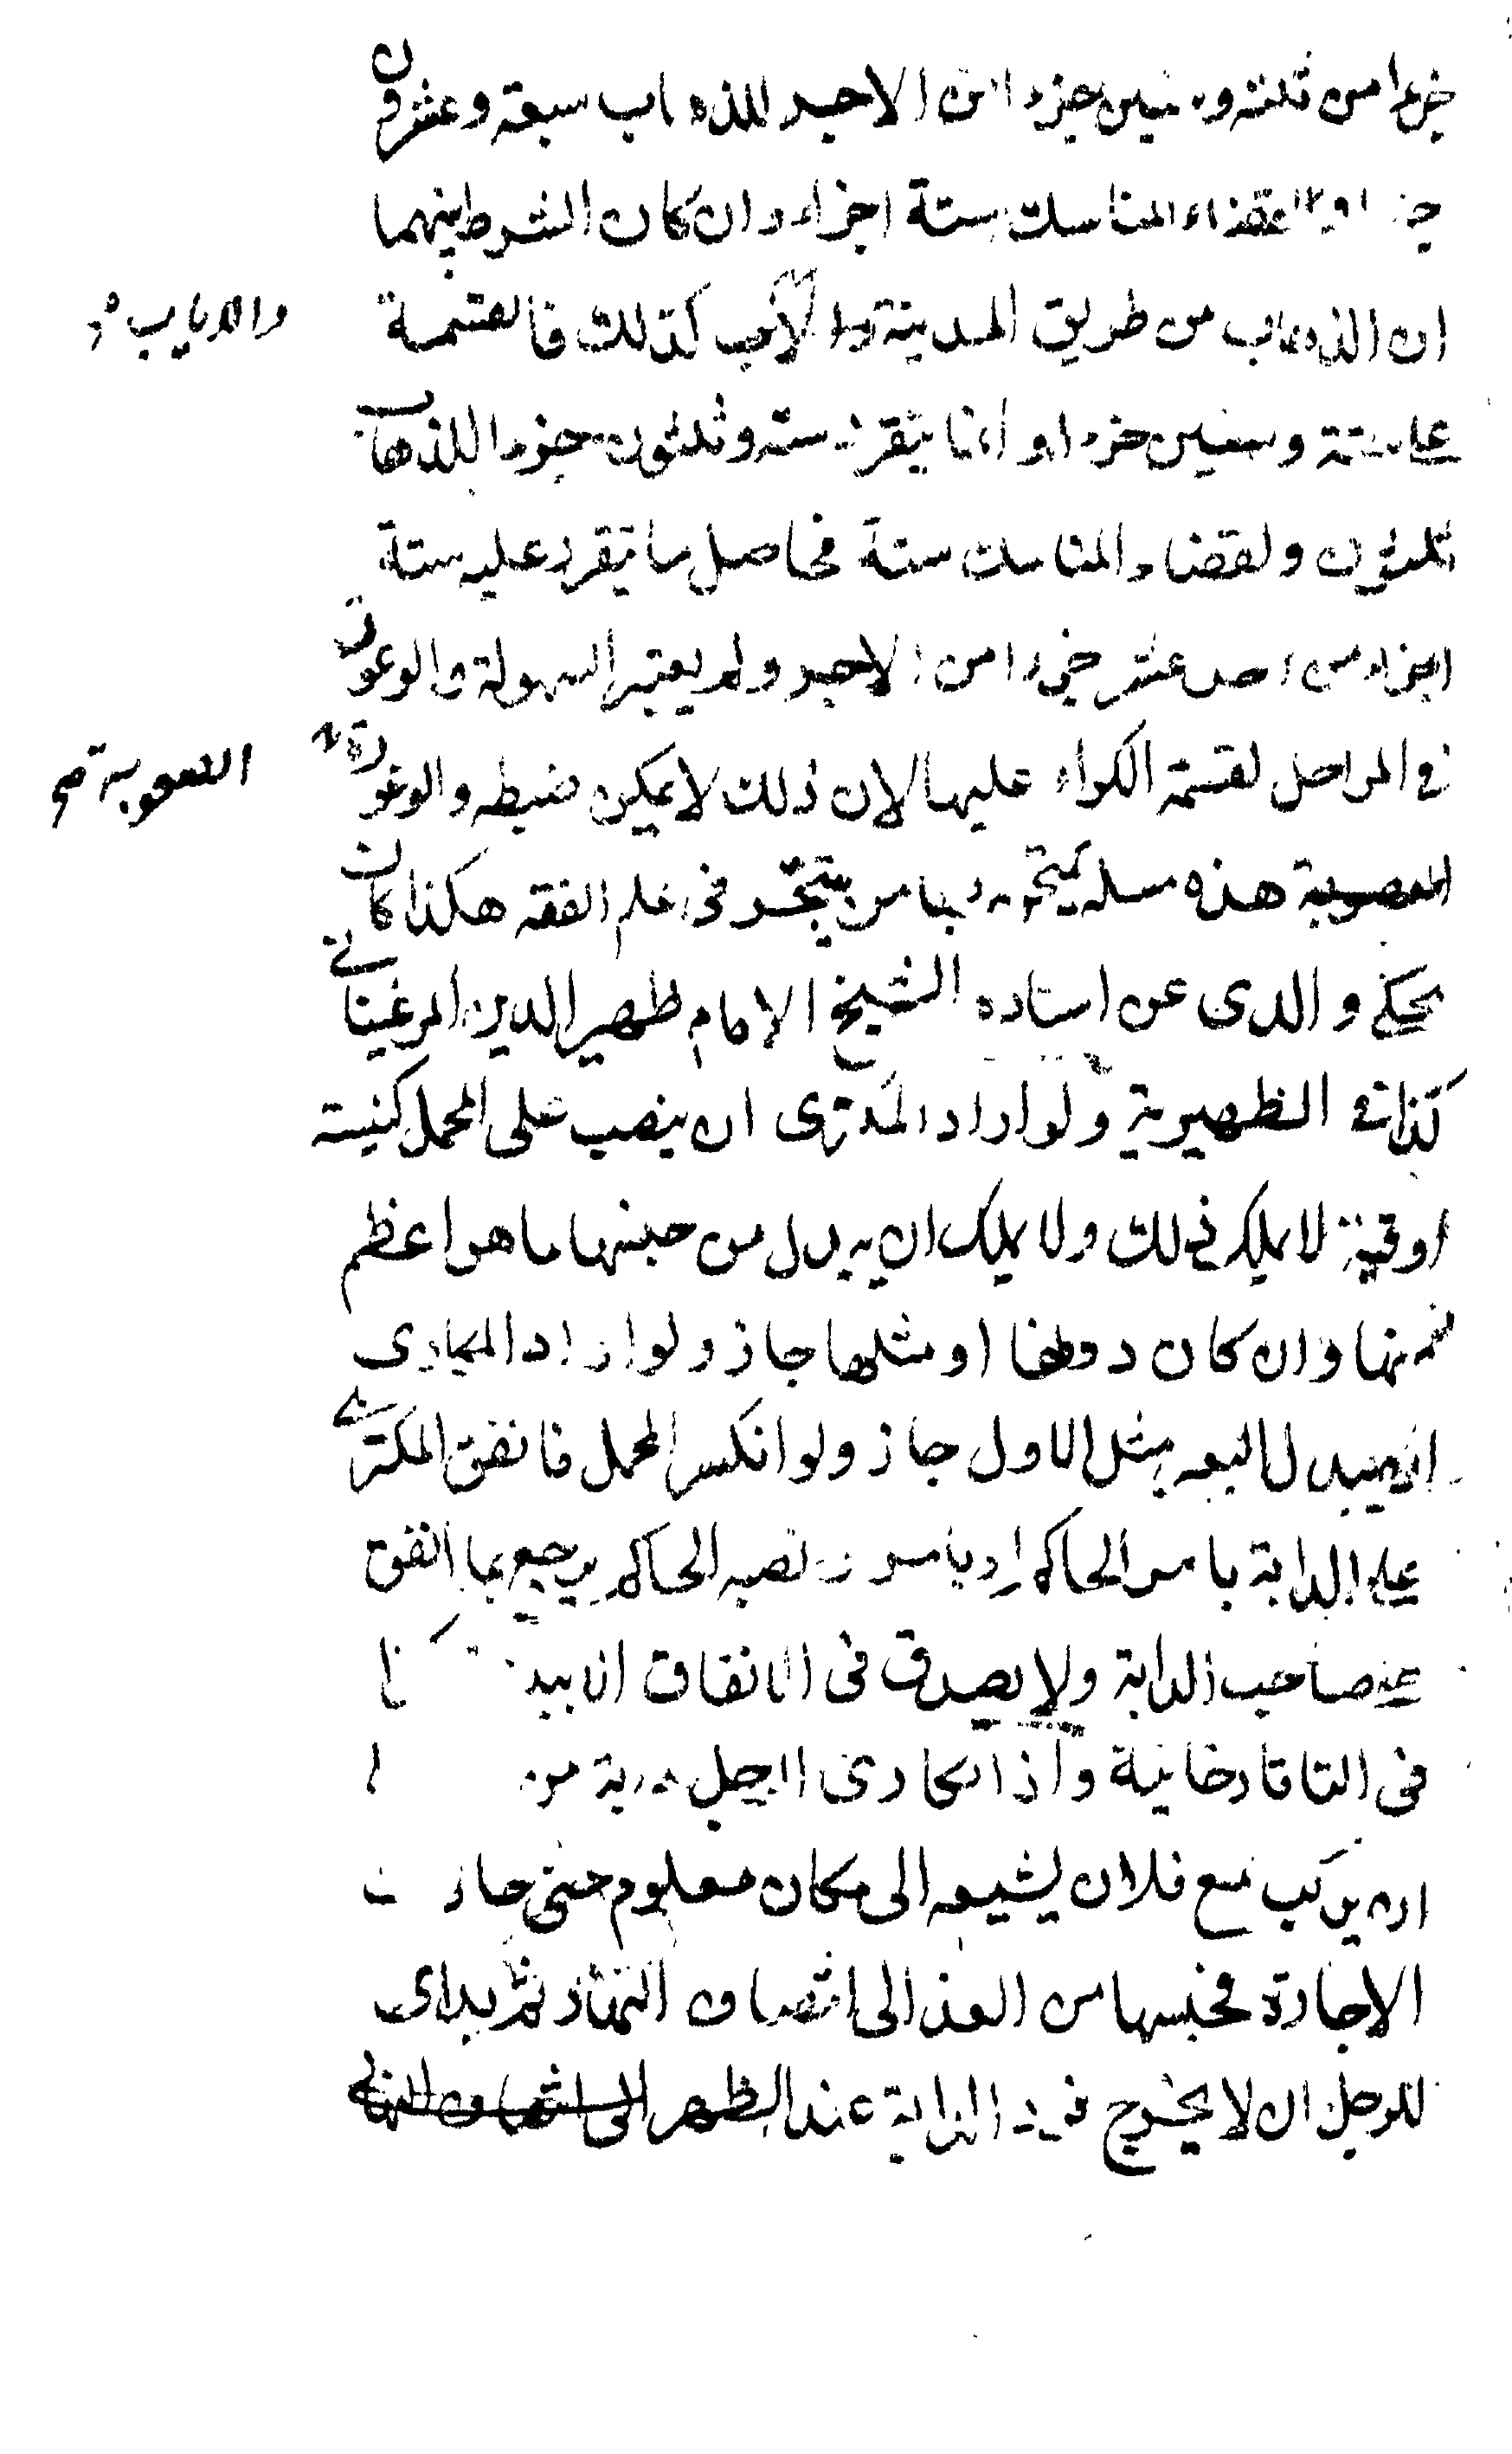 جزءا من ثلثة وستين جزءا من الاجر للذهاب سبعة وعشرون
جزءا ولقضاء المناسك ستة اجزاء وان كان الشرط بينهما
ان الذهاب من طريق المدينة كذلك فالقسمة
والاياب
على ستة وستين جزءا وانما يتقرر ستة وثلثون جزءا للذهاب
ثلثون ولقضاء المناسك ستة فحاصل ما يتقرر عليه ستة
اجزاء من احد عشر جزءا من الاجر ولم يعتبر السهولة والوعورة
في المراحل لقسمة الكراء عليها لان ذلك لا يمكن ضبطه والوعورة
الصعوبة صح
هذه مسئلة بها من يتبحر في علم الفقه هكذا كان
يحكي والدى عن استاده الشيخ الامام ظهير الدين المرغينانى
كذا في الظهيرية ولو اراد المكترى ان ينصب على المحمل كنيسة
او قبة لا يملك ذلك ولا يملك ان يبدل من جنسها ما هو اعظم
منها وان كان دونها او مثلها جاز ولو اراد المكارى
ان يبدل البعير بمثل الاول جاز ولو انكسر المحمل فانفق المكترى
على الدابة بامر الحاكم او بامر من نصبه الحاكم يرجع بما انفق
على صاحب الدابة ولا يصدق فى الانفاق الا ببينة كذا
فى التاتارخانية واذا تكارى الرجل دابة من
ان يركب مع فلان يشيعه الى مكان معلوم حتى جازت
الاجارة فحبسها من الغد الى انتصاف النهار ثم بدا
للرجل ان لا يخرج فرد الدابة عند الظهر الى انتصاف النهار